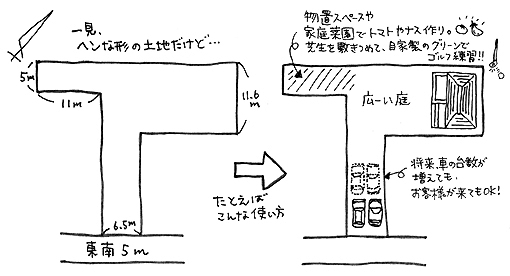 一見、
ヘンな形の土地だけど…
5m
11m
11.6m
6.5m
東南5m
たとえば
こんな使い方
物置スペースや
家庭菜園でトマトやナス作り。
芝生を敷きつめて、自家製のグリーンで
ゴルフ練習!!
広ーい庭
将来、車の台数が
増えても、
お客様が来てもOK!